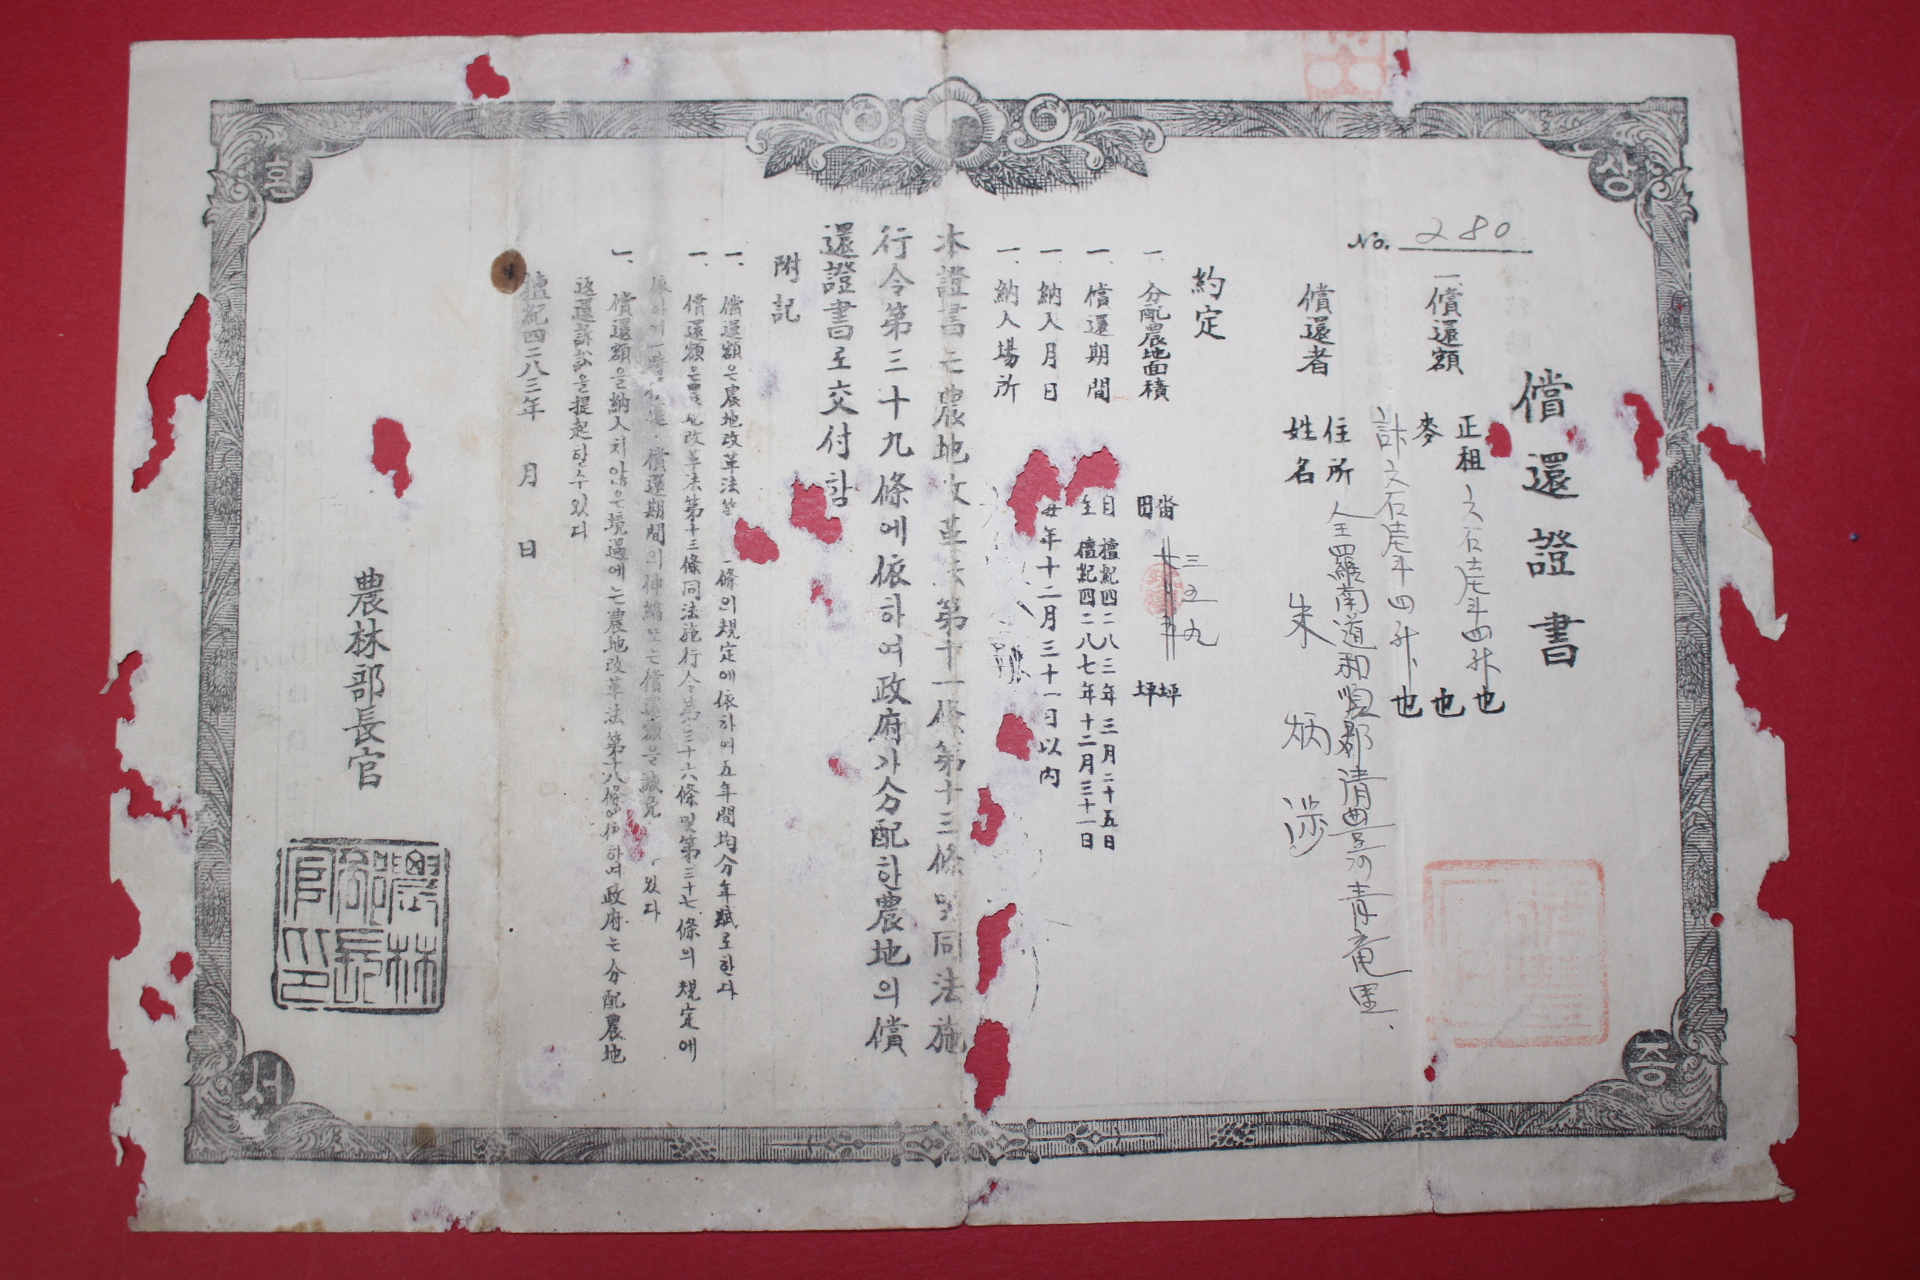 상환증서
No. 280
償還證書
一、償還額 正租 六石壱斗四升也
麥 也
計 六石壱斗四升也
償還者 住所 全羅南道和順郡清豊面青竜里
姓名 朱炳涉
約定
一、分配農地面積 畓 三五九坪
田 坪
一、償還期間 自檀紀四二八三年三月二十五日
至檀紀四二八七年十二月三十一日
一、納入月日 每年十二月三十一日以內
一、納入場所
本證書는農地改革法第十一條第十三條및同法施
行令第三十九條에依하여政府가分配한農地의償
還證書로交付함
附記
一、償還額은農地改革法第 條의規定에依하여五年間均分年賦로한다
一、償還額은農地改革法第十三條同法施行令第三十六條및第三十七條의規定에
依하여一時 償還期間의伸縮또는償還額을減免 있다
一、償還額을納入치않은境遇에는農地改革法第十八條에依하여政府는分配農地
返還訴訟을提起할수있다
檀紀四二八三年 月 日
農林部長官
農林部長官印